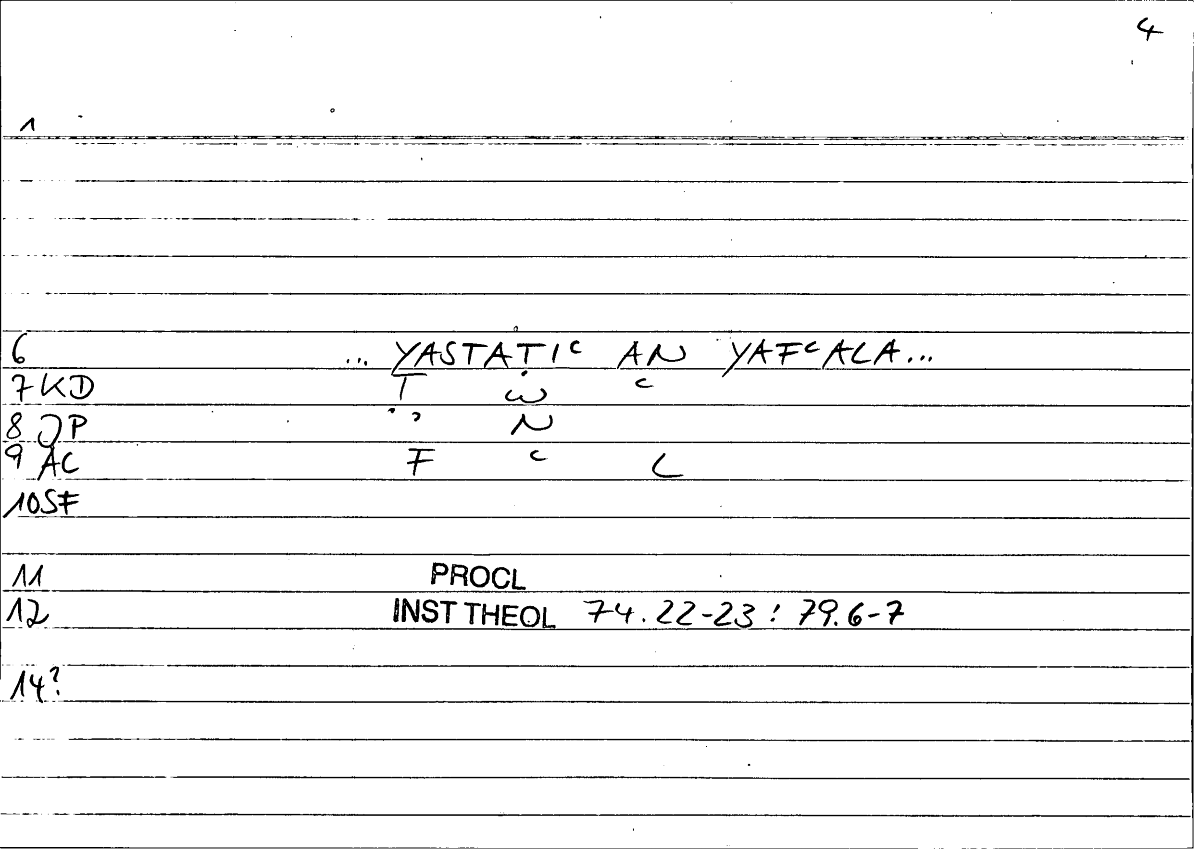 4
1
6 ... YASTATIᶜ AN YAFᶜALA...
7 KD T ω̇ ᶜ
8 JP N
9 AC F ᶜ L
10 SF
11 PROCL
12 INST THEOL 74.22-23 : 79.6-7
14?